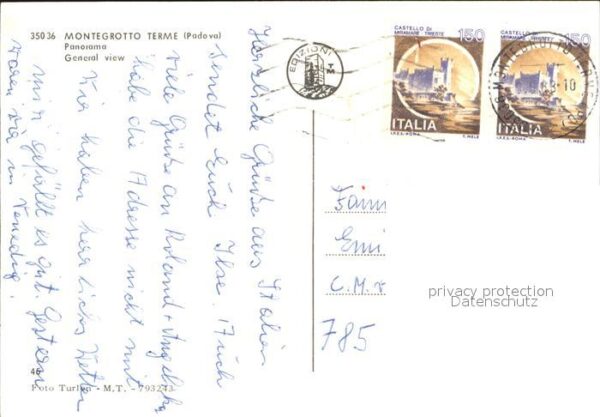 35036 MONTEGROTTO TERME (Padova)
Panorama
General view
EDIZIONI
TM
CASTELLO DI
MIRAMARE TRIESTE
150
ITALIA
I.P.Z.S.-ROMA
T. MELE
CASTELLO DI
MIRAMARE TRIESTE
150
ITALIA
I.P.Z.S.-ROMA
T. MELE
Herzliche Grüße aus Italien
sendet Euch Ilse.
Viele Grüße an Roland + Angelika,
habe die Adresse nicht mit
Wir haben herrliches Wetter
mir gefällt es gut. Gestern
waren wir in Venedig.
Fam
Emi
C.M.v
785
privacy protection
Datenschutz
46
Foto Turlon - M.T. - 793243